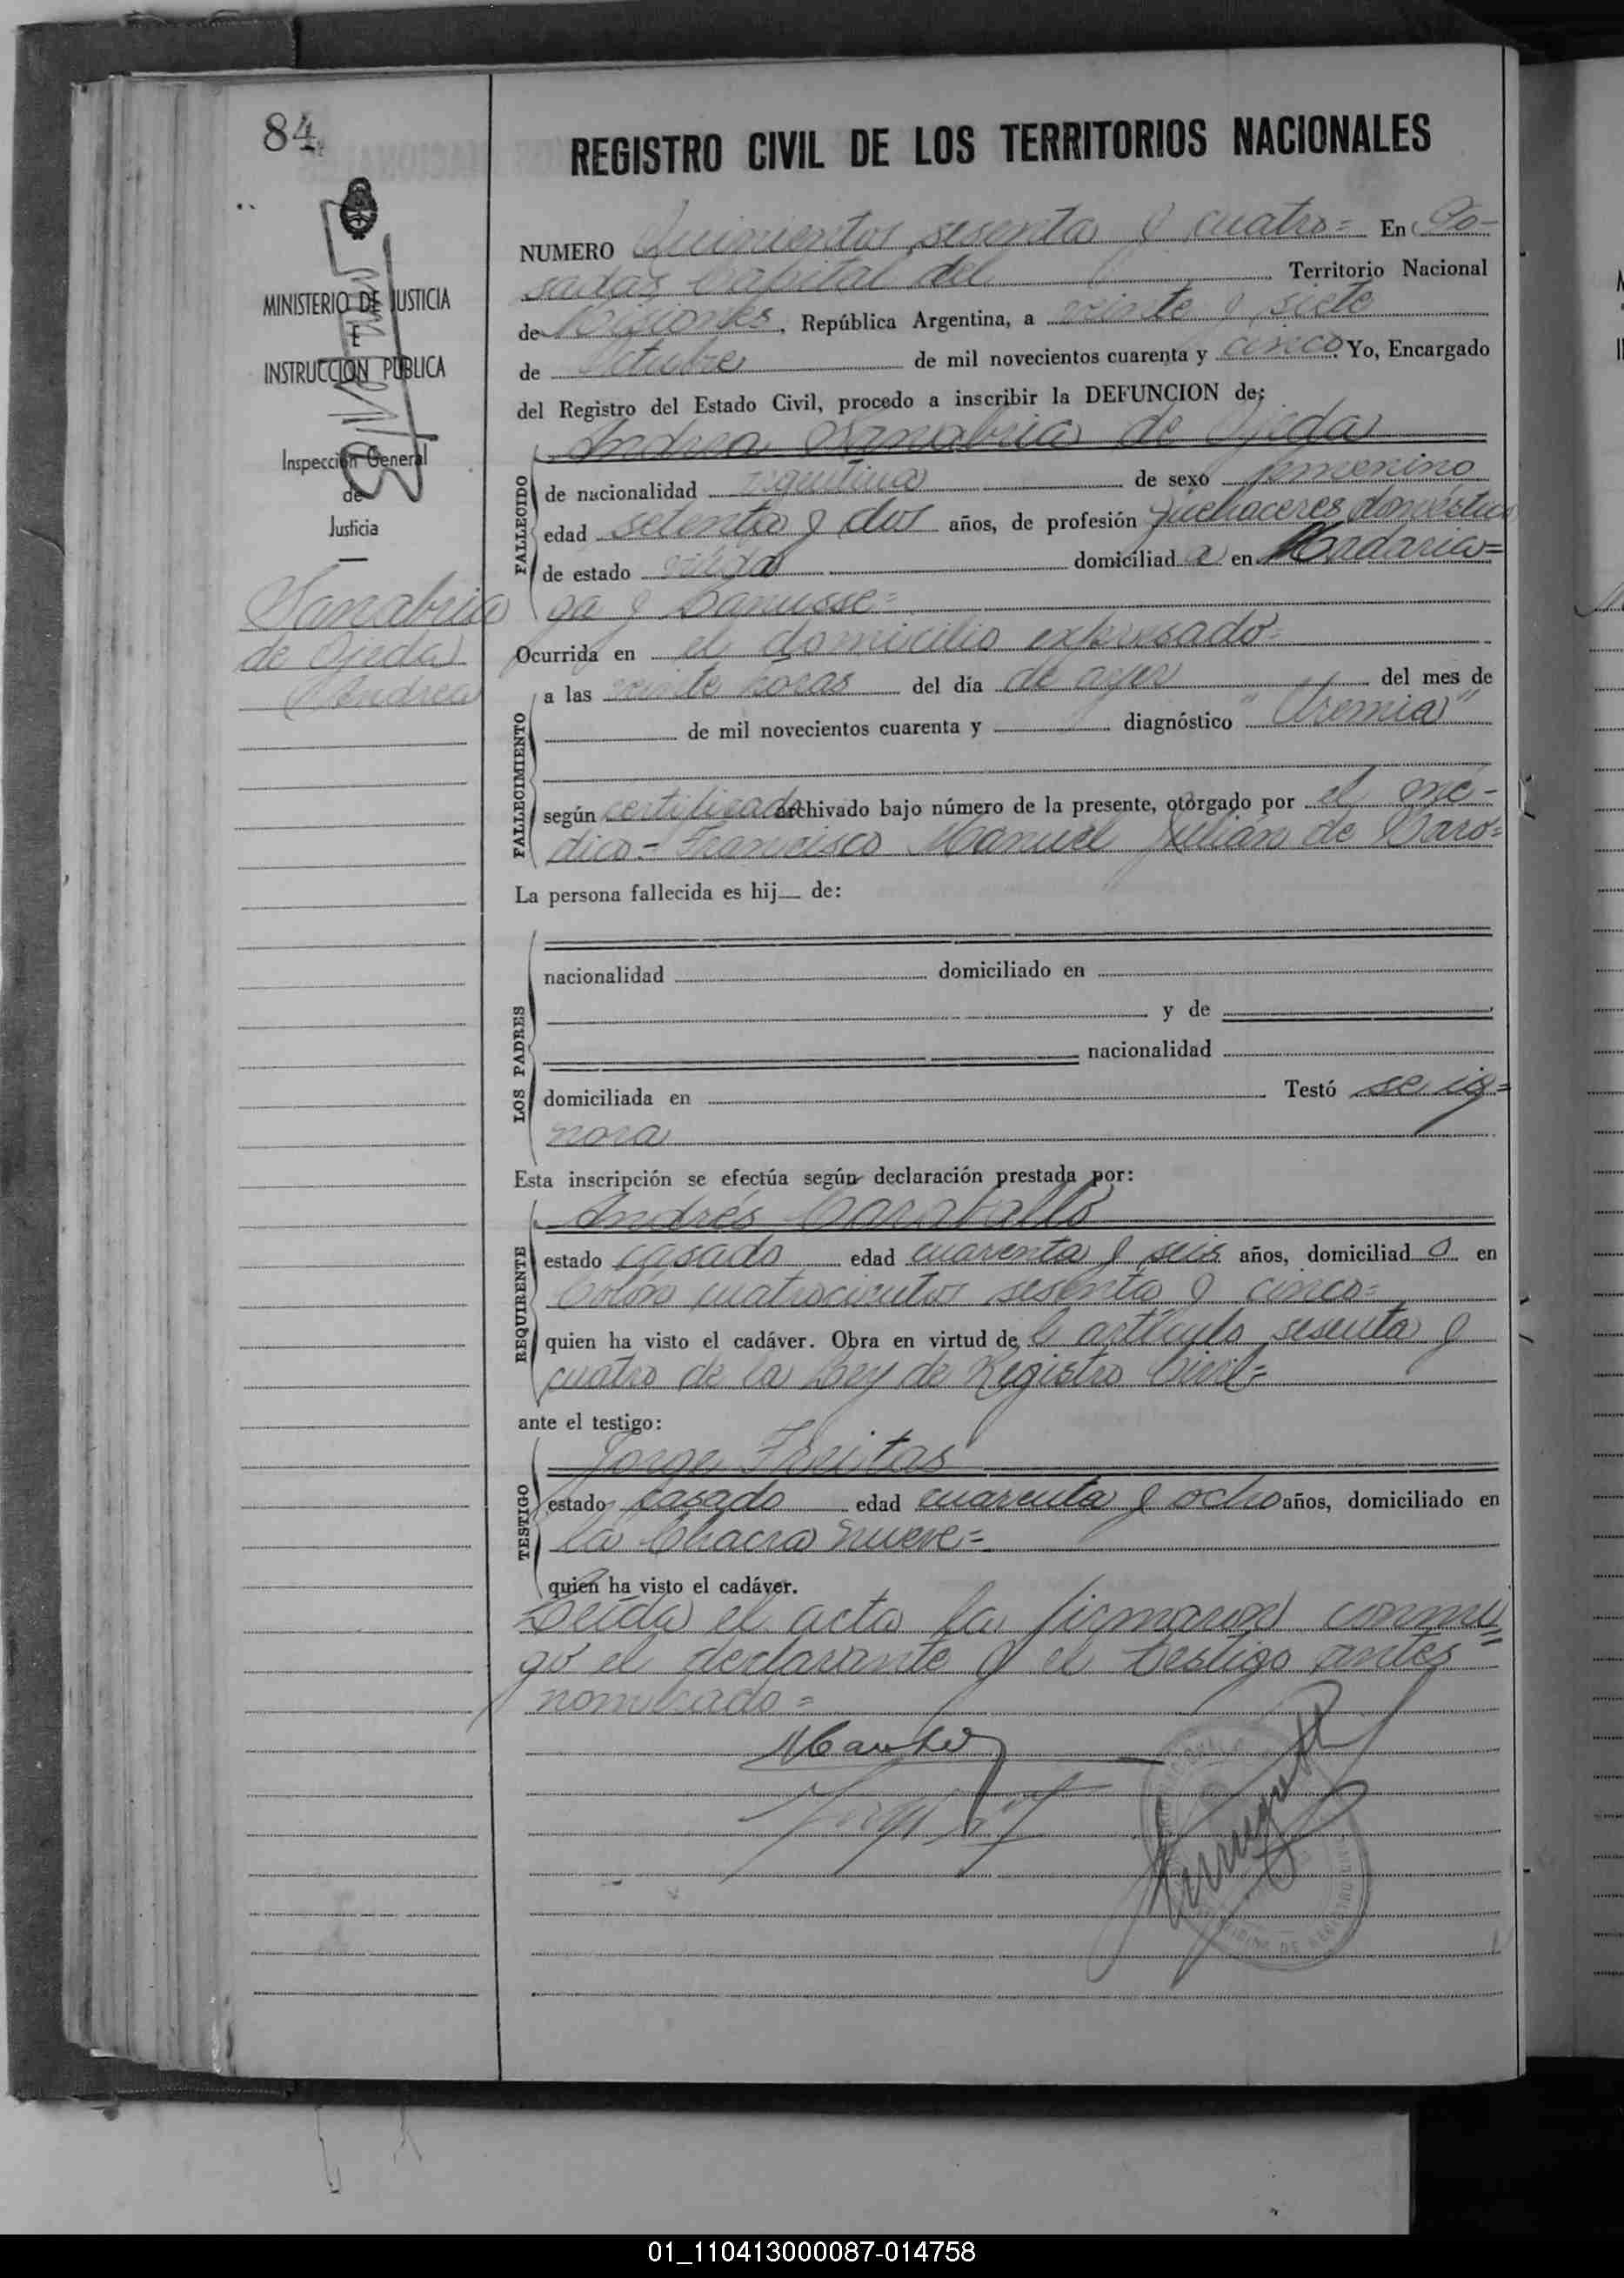 84
REGISTRO CIVIL DE LOS TERRITORIOS NACIONALES
MINISTERIO DE JUSTICIA
E
INSTRUCCION PUBLICA
Inspección General
de
Justicia
Sanabria
de Ojeda
Andrea
NUMERO Quinientos sesenta y cuatro= En Po-
sadas Capital del Territorio Nacional
de Misiones, República Argentina, a veinte y siete
de Octubre de mil novecientos cuarenta y cinco Yo, Encargado
del Registro del Estado Civil, procedo a inscribir la DEFUNCION de:
Andrea Sanabria de Ojeda
FALLECIDO
de nacionalidad argentina de sexo femenino
edad setenta y dos años, de profesión quehaceres domésticos
de estado viuda domiciliad a en
ga y
Ocurrida en el domicilio expresado=
FALLECIMIENTO
a las veinte horas del día de ayer del mes de
de mil novecientos cuarenta y diagnóstico "Uremia"
según certificado archivado bajo número de la presente, otorgado por el mé-
dico= Francisco Manuel Julián de Haro=
La persona fallecida es hij de:
LOS PADRES
nacionalidad domiciliado en
y de
nacionalidad
domiciliada en Testó se ig=
nora
Esta inscripción se efectúa según declaración prestada por:
Andrés Caraballo
REQUIRENTE
estado casado edad cuarenta y seis años, domiciliad o en
Colón cuatrocientos sesenta y cinco=
quien ha visto el cadáver. Obra en virtud de l artículo sesenta y
cuatro de la Ley de Registro Civil=
ante el testigo:
Jorge Freitas
TESTIGO
estado casado edad cuarenta y ocho años, domiciliado en
la Chacra nueve=
quien ha visto el cadáver.
Leída el acta la firmaron conmi=
go el declarante y el testigo antes
nombrado=
01_110413000087-014758